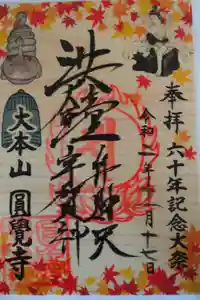 奉拝 六十年記念大祭
令和二年十一月十七日
洪鐘 弁財天
宇賀神
大本山 圓覺寺